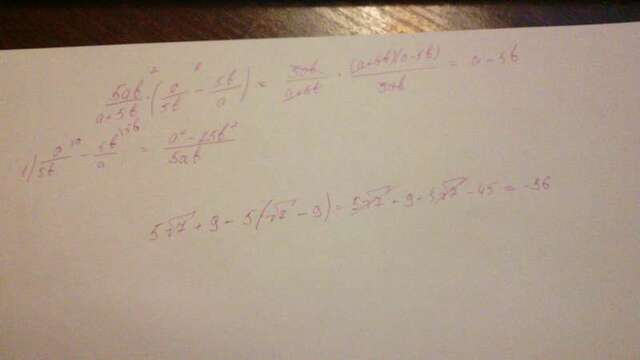 5ab/(a+5b) · (a/5b − 5b/a) = 5ab/(a+5b) · (a+5b)(a−5b)/5ab = a−5b
1) a/5b − 5b/a = (a²−25b²)/5ab
5√7 + 9 − 5(√7 − 9) = 5√7 + 9 − 5√7 − 45 = −36